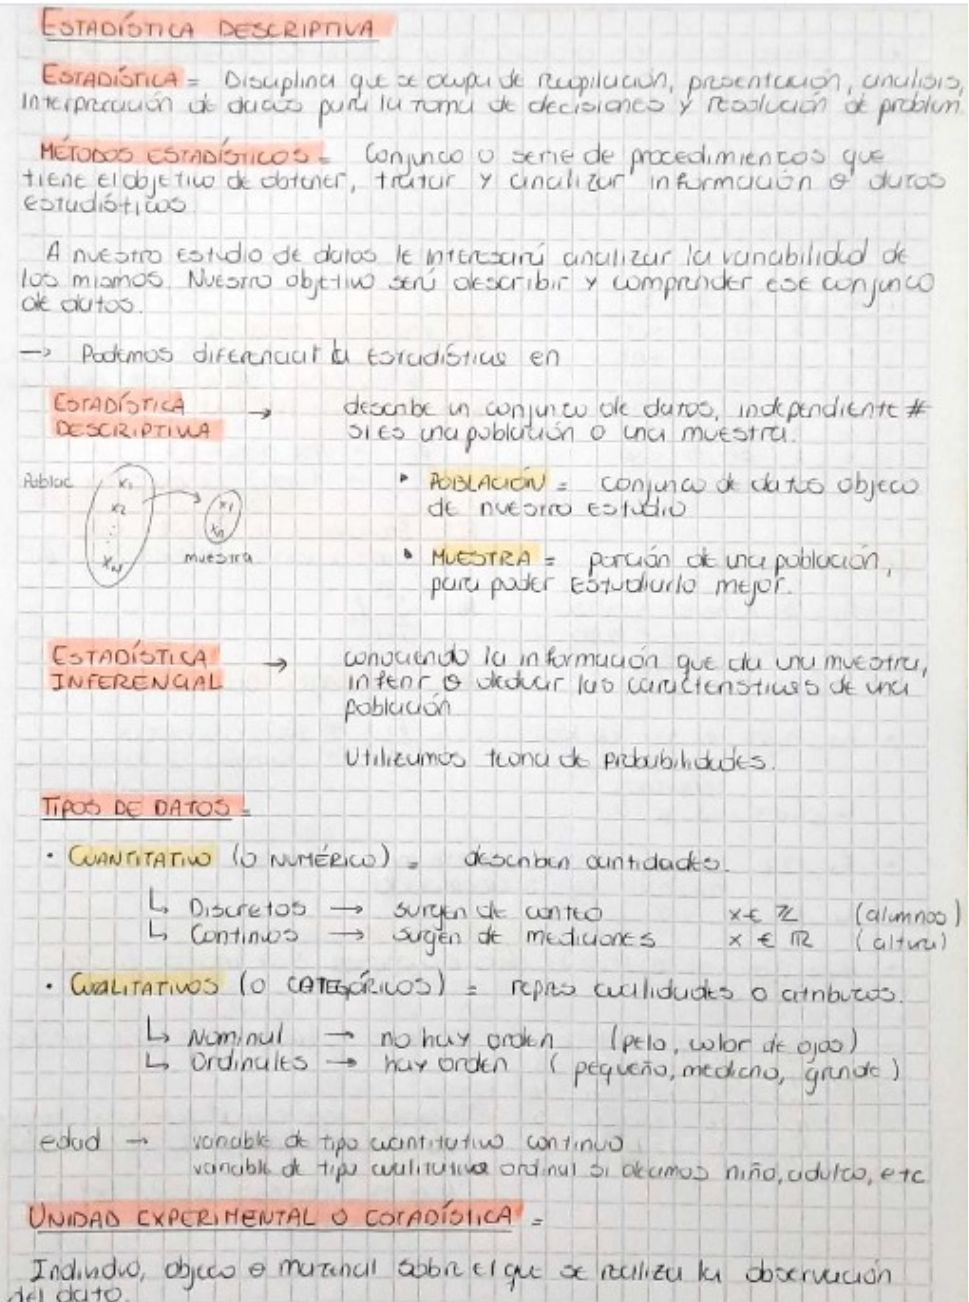 ESTADÍSTICA DESCRIPTIVA
ESTADÍSTICA = Disciplina que se ocupa de recopilación, presentación, análisis,
interpretación de datos para la toma de decisiones y resolución de problem
MÉTODOS ESTADÍSTICOS = Conjunto o serie de procedimientos que
tiene el objetivo de obtener, tratar y analizar información o datos
estadísticos
A nuestro estudio de datos le interesará analizar la variabilidad de
los mismos. Nuestro objetivo será describir y comprender ese conjunto
de datos.
→ Podemos diferenciar la estadística en
ESTADÍSTICA → describe un conjunto de datos, independiente #
DESCRIPTIVA si es una población o una muestra.
Poblac x1 x2 ⋮ xN
x1 xn muestra
• POBLACIÓN = conjunto de datos objeto
de nuestro estudio
• MUESTRA = porción de una población,
para poder estudiarlo mejor.
ESTADÍSTICA → conociendo la información que da una muestra,
INFERENCIAL inferir o deducir las características de una
población
Utilizamos teoría de probabilidades.
TIPOS DE DATOS =
• CUANTITATIVO (O NUMÉRICO) = describen cantidades.
↳ Discretos → surgen de conteo x ∈ ℤ (alumnos)
↳ Continuos → surgen de mediciones x ∈ ℝ (altura)
• CUALITATIVOS (O CATEGÓRICOS) = repres cualidades o atributos.
↳ Nominal → no hay orden (pelo, color de ojos)
↳ Ordinales → hay orden (pequeño, mediano, grande)
edad → variable de tipo cuantitativo continuo
variable de tipo cualitativa ordinal si decimos niño, adulto, etc
UNIDAD EXPERIMENTAL O ESTADÍSTICA =
Individuo, objeto o material sobre el que se realiza la observación
del dato.